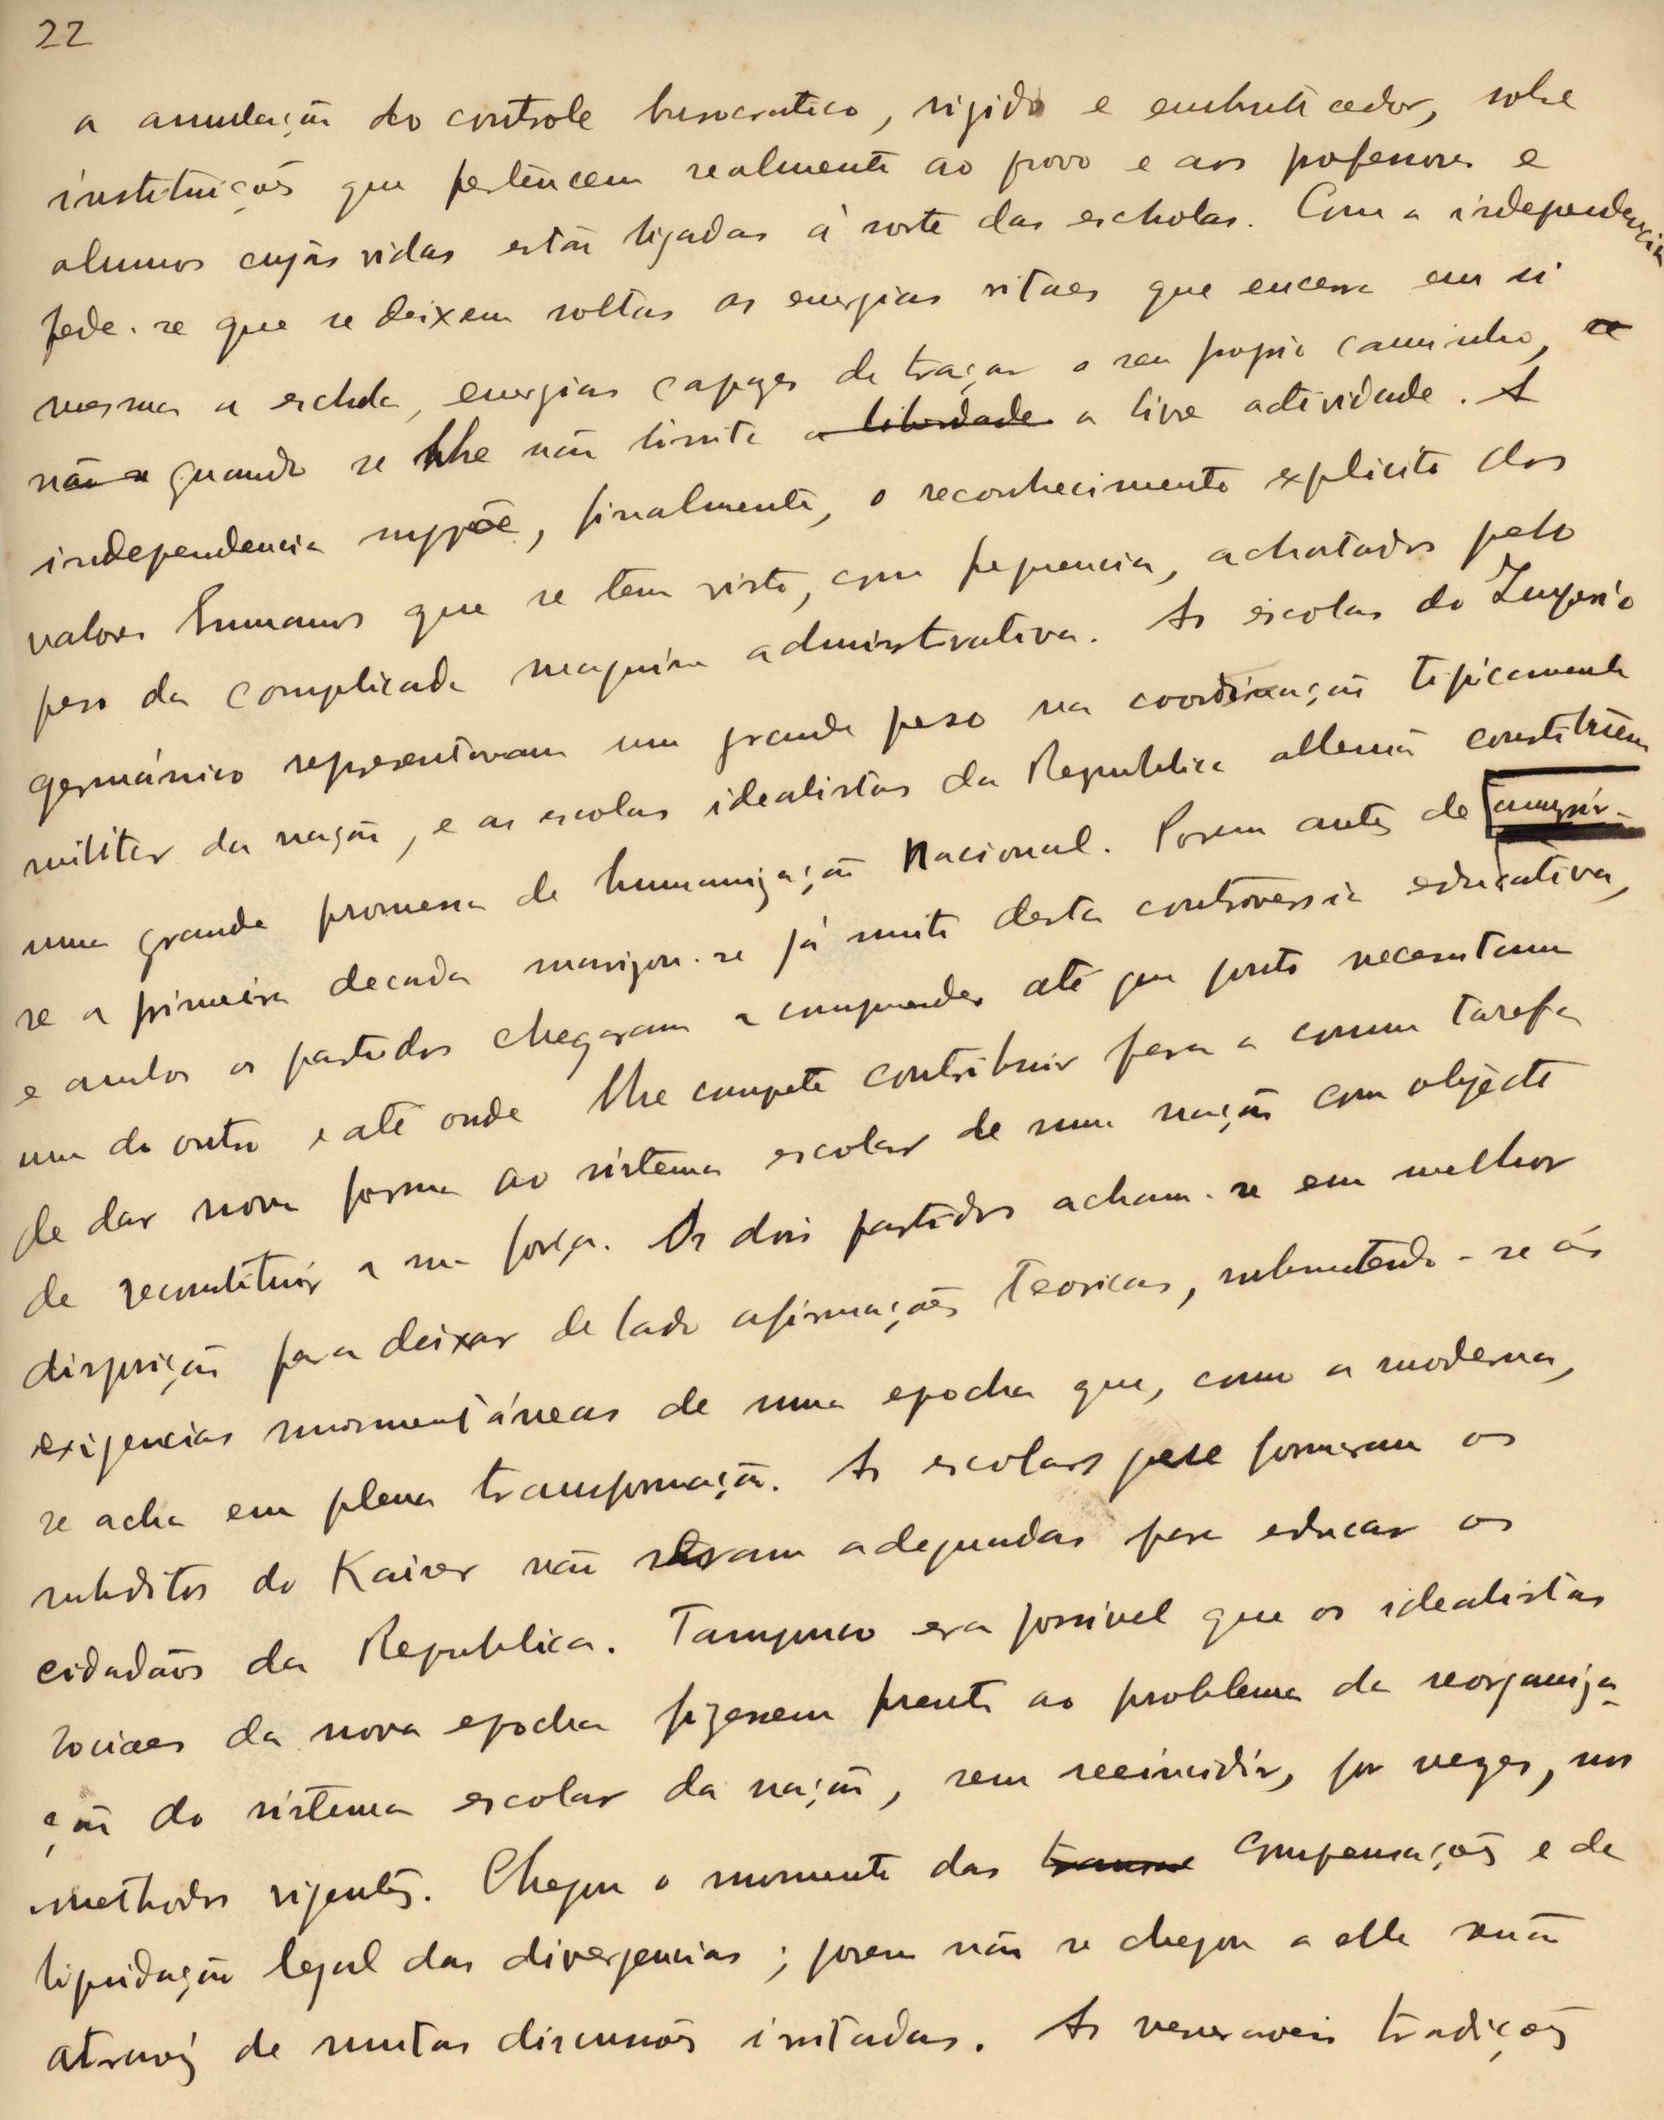 22
a annulação do controle burocratico, rigido e embrutecedor, sobre
instituições que pertencem realmente ao povo e aos professores e
alumnos cujas vidas estão ligadas á sorte das escholas. Com a independencia
pede-se que se deixem soltas as energias vitaes que encerra em si
mesma a eschola, energias capazes de traçar o seu proprio caminho, se
não a quando se lhe não limite a liberdade a livre actividade. A
independencia suppõe, finalmente, o reconhecimento explicito dos
valores humanos que se tem visto, com frequencia, achatados pelo
peso da complicada maquina administrativa. As escolas do Imperio
germánico representavam um grande peso na coordinação tipicamente
militar da nação, e as escolas idealistas da Republica allemã constituiem
uma grande promessa de humanização Nacional. Porem antes de cumprir-
se a primeira decada suavizou-se já muito desta controversia educativa,
e ambos os partidos chegaram a comprender até que ponto necessitam
um do outro e até onde lhe compete contribuir para a comum tarefa
de dar nova forma ao sistema escolar de uma nação com objecto
de reconstituir a sua força. Os dois partidos acham-se em melhor
disposição para deixar de lado afirmações teoricas, submetendo-se ás
exigencias momentáneas de uma epocha que, como a moderna,
se acha em plena transformação. As escolas que formaram os
subditos do Kaiser não eram adequadas para educar os
cidadãos da Republica. Tampouco era possivel que os idealistas
sociaes da nova epocha fizessem frente ao problema da reorganiza-
ção do sistema escolar da nação, sem reeincidir, por vezes, nos
methodos vigentes. Chegou o momento das transa compensações e da
liquidação legal das divergencias; porem não se chegou a elle senão
atravez de muitas discussões irritadas. As veneraveis tradições